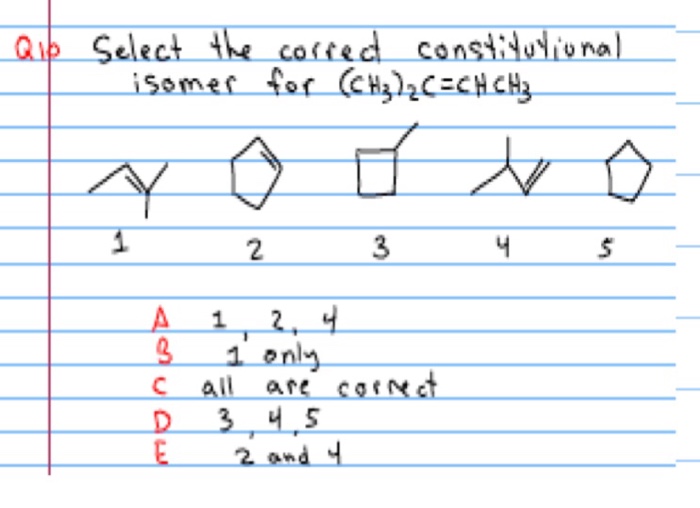 Q10 Select the correct constitutional
isomer for (CH3)2C=CHCH3
1 2 3 4 5
A 1, 2, 4
B 1 only
C all are correct
D 3, 4, 5
E 2 and 4